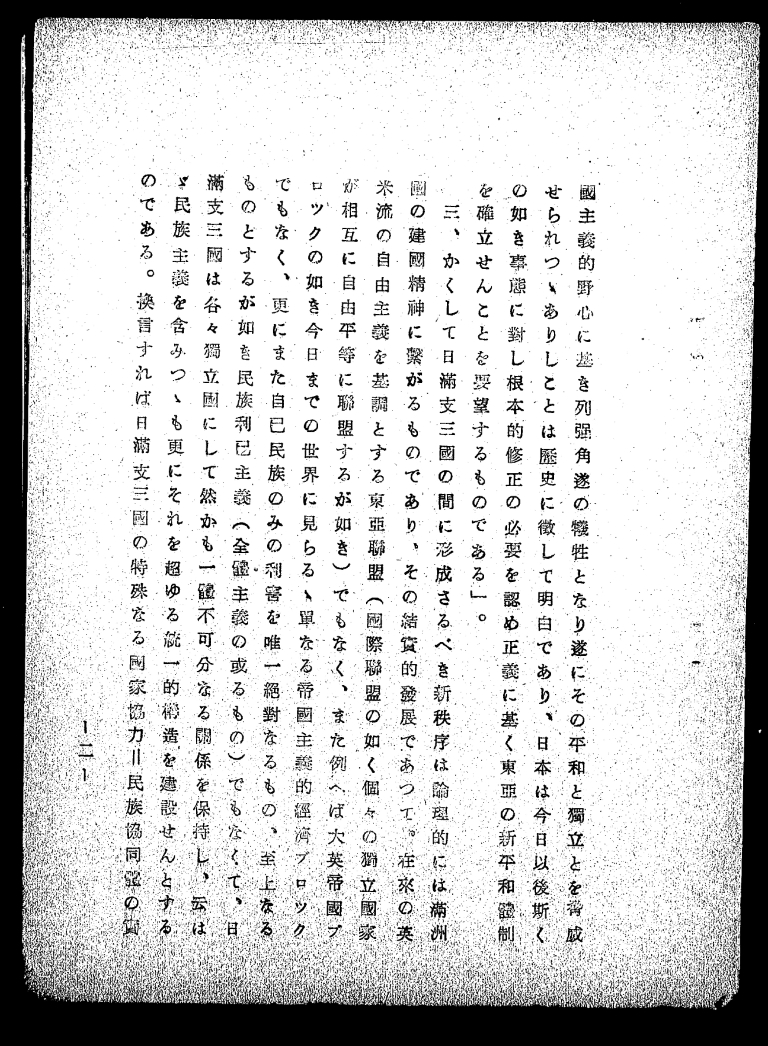 國主義的野心に基き列强角逐の犧牲となり遂にその平和と獨立とを脅威
せられつゝありしことは歷史に徵して明白であり、日本は今日以後斯く
の如き事態に對し根本的修正の必要を認め正義に基く東亞の新平和體制
を確立せんことを要望するものである」。
三、かくして日滿支三國の間に形成さるべき新秩序は論理的には滿洲
國の建國精神に繫がるものであり、その結實的發展であつて。在來の英
米流の自由主義を基調とする東亞聯盟（國際聯盟の如く個々の獨立國家
が相互に自由平等に聯盟するが如き）でもなく、また例へば大英帝國ブ
ロックの如き今日までの世界に見らるゝ單なる帝國主義的經濟ブロック
でもなく、更にまた自己民族のみの利害を唯一絕對なるもの、至上なる
ものとするが如き民族利己主義（全體主義の或るもの）でもなくて、日
滿支三國は各々獨立國にして然かも一體不可分なる關係を保持し、云は
ゞ民族主義を含みつゝも更にそれを超ゆる統一的構造を建設せんとする
のである。換言すれば日滿支三國の特殊なる國家協力＝民族協同體の實
—二—